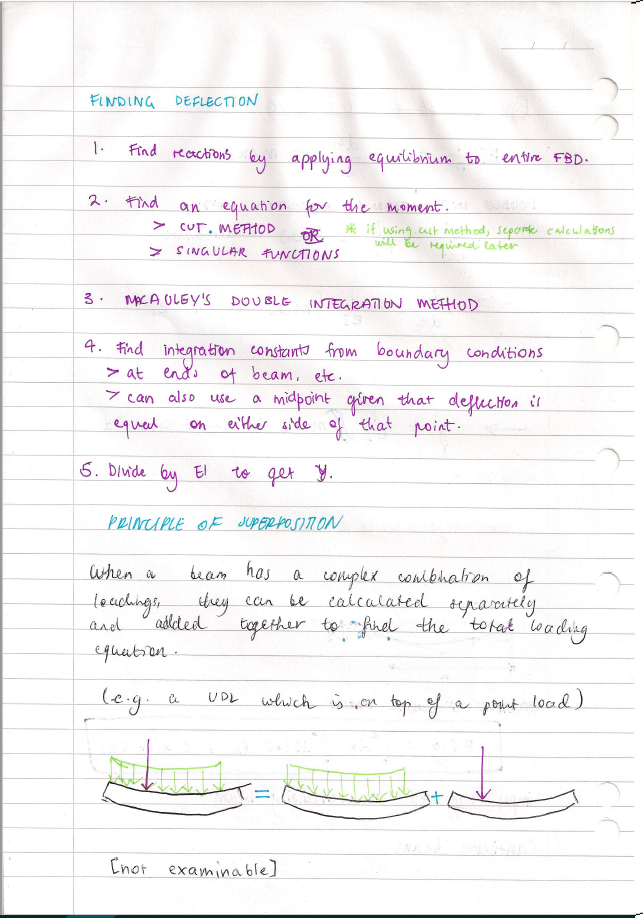 FINDING DEFLECTION
1. Find reactions by applying equilibrium to entire FBD.
2. Find an equation for the moment.
> CUT METHOD OR * if using cut method, separate calculations
will be required later
> SINGULAR FUNCTIONS
3. MACAULEY'S DOUBLE INTEGRATION METHOD
4. Find integration constants from boundary conditions
> at ends of beam, etc.
> can also use a midpoint given that deflection is
equal on either side of that point.
5. Divide by EI to get y.
PRINCIPLE OF SUPERPOSITION
When a beam has a complex combination of
loadings, they can be calculated separately
and added together to find the total loading
equation.
(e.g. a UDL which is on top of a point load)
= +
[not examinable]